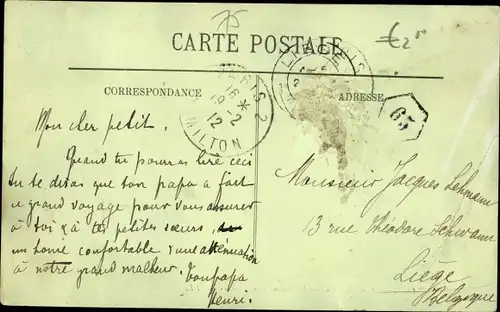 75
€2⁰⁰
CARTE POSTALE
CORRESPONDANCE
ADRESSE
PARIS 2
16 *
19-2
12
MILTON
LIEGE
65
Mon cher petit.
Quand tu pourras lire ceci
tu te diras que ton papa a fait
ce grand voyage pour vous assurer
à toi & à tes petites sœurs
un home confortable & une atténuation
à notre grand malheur. Ton papa
Henri.
Monsieur Jacques Lehmann
13 rue Théodore Schwann
Liège
Belgique